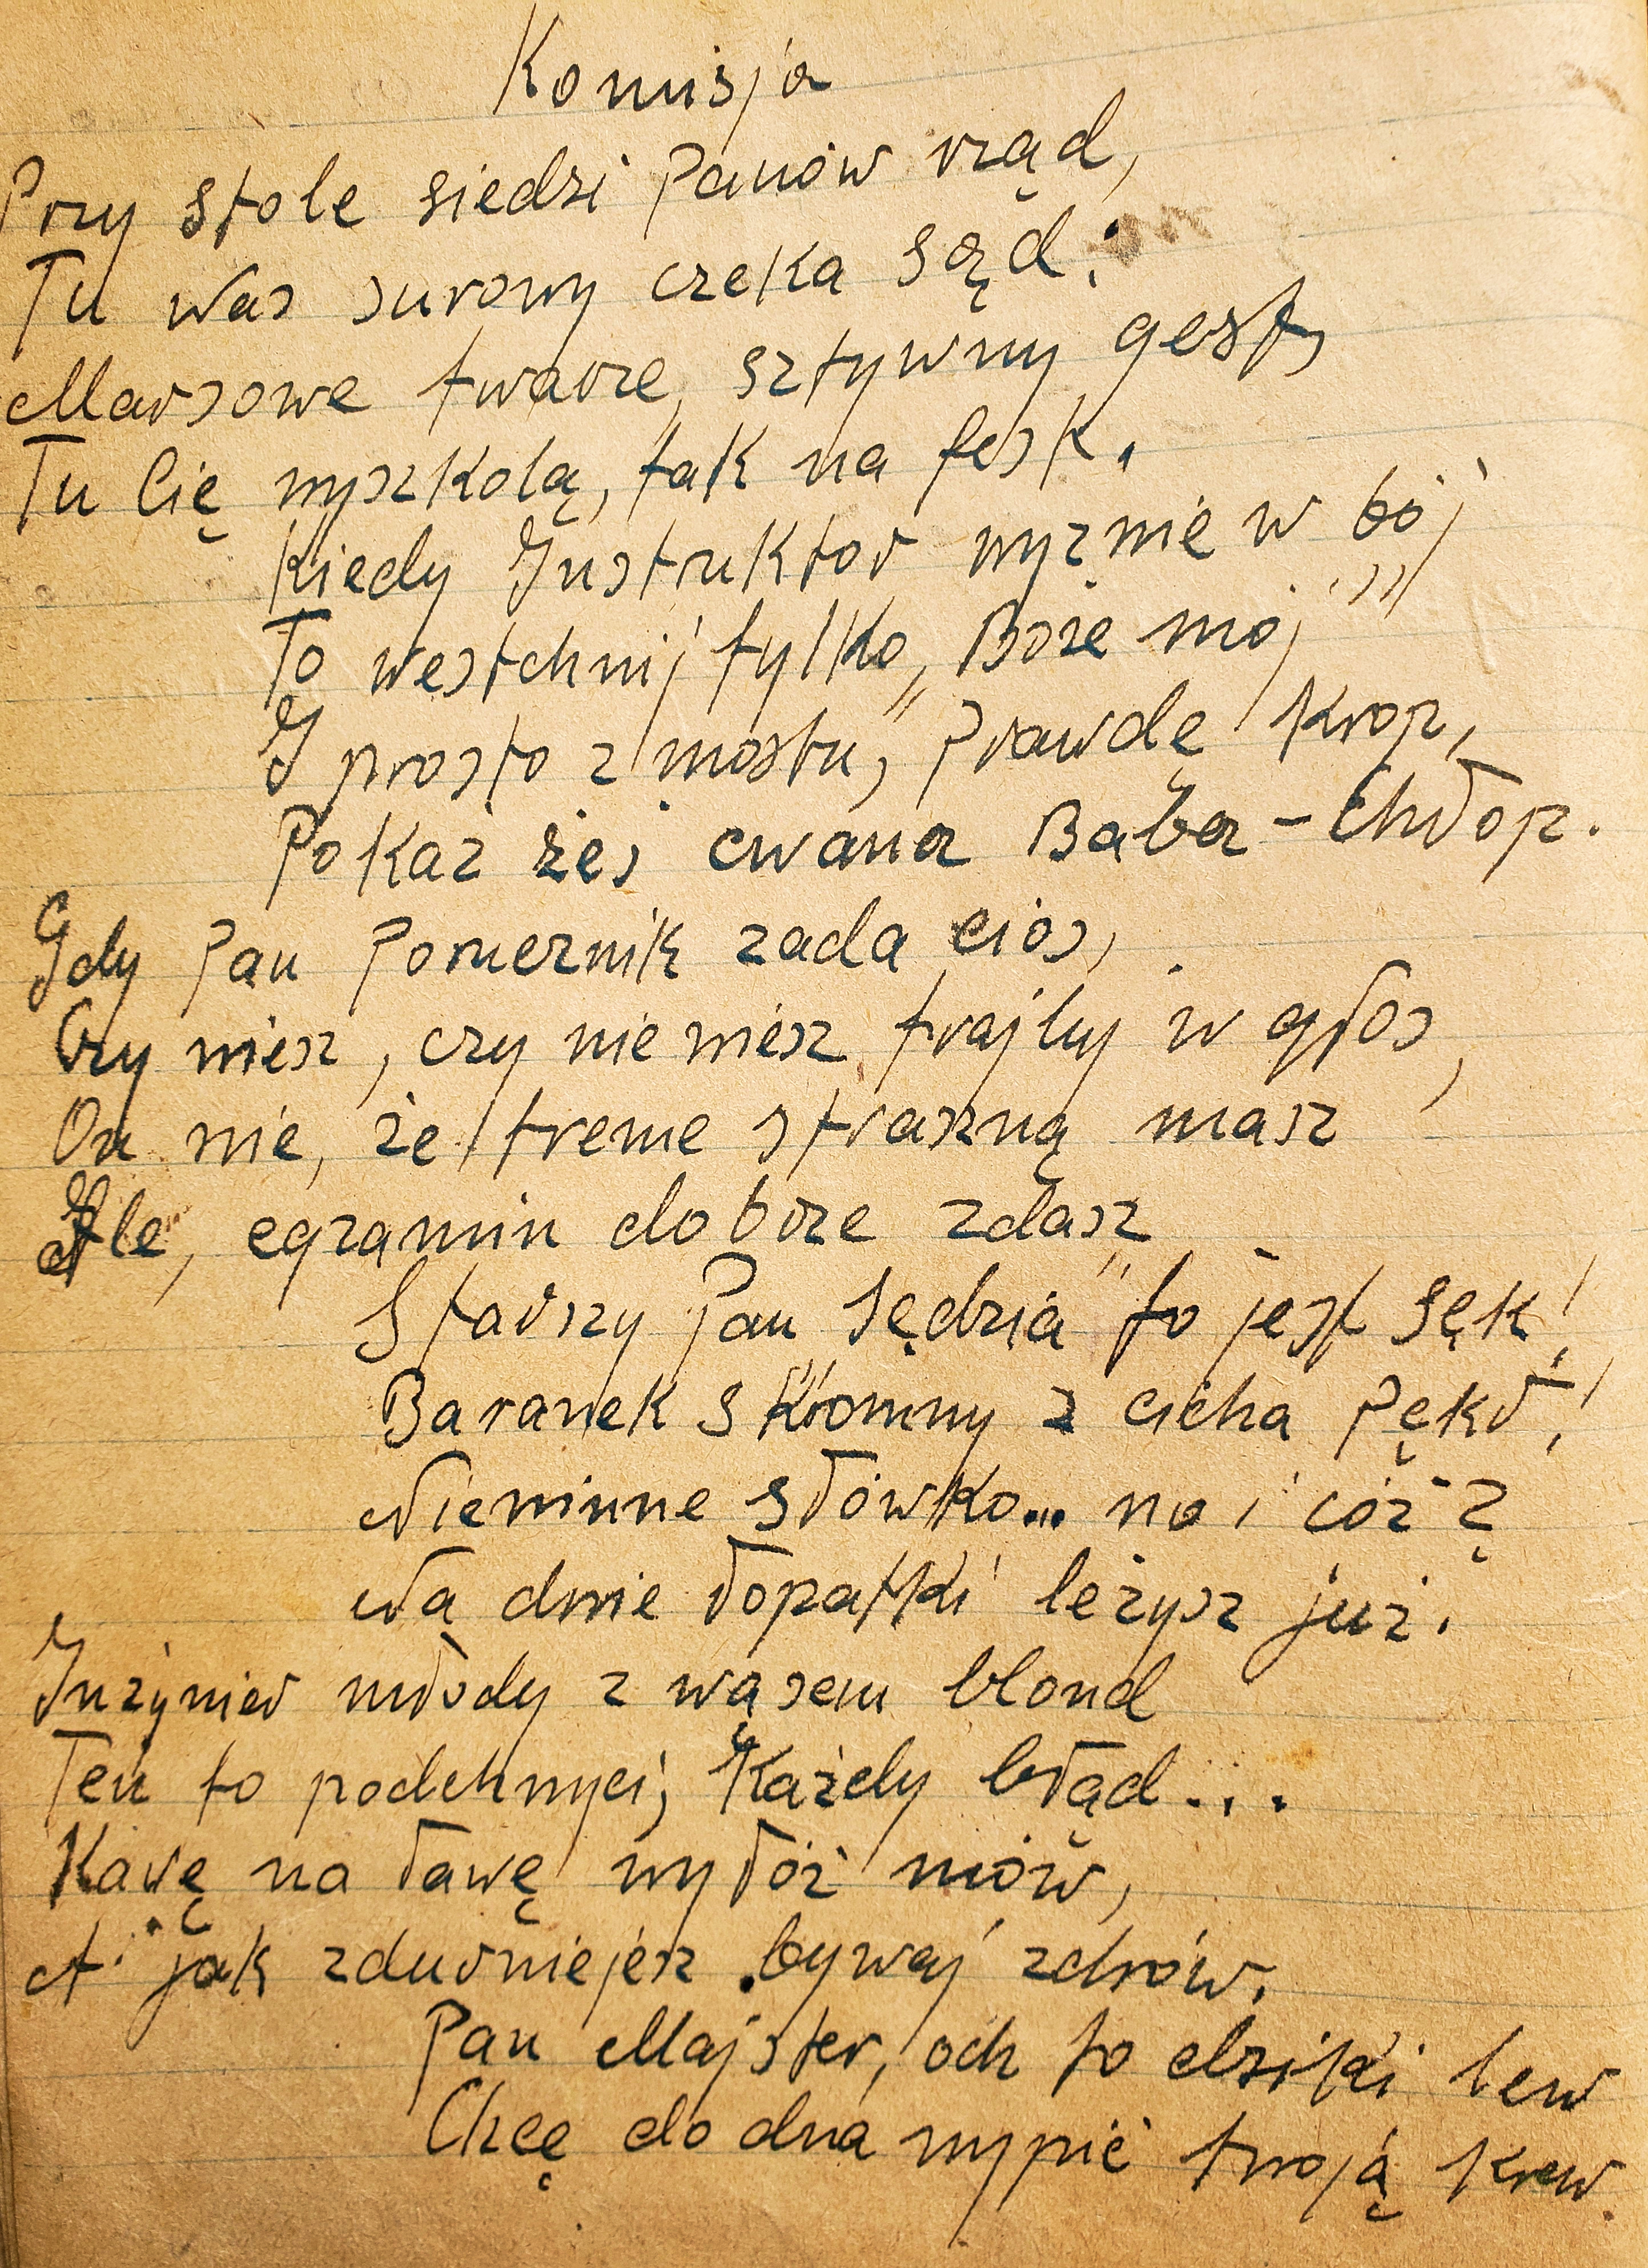 Komisja
Przy stole siedzi Panów rząd,
Tu was surowy czeka sąd;
Marsowe twarze, sztywny gest,
Tu Cię wyszkolą, tak na fest.
Kiedy Instruktor wyzwie w bój
To westchnij tylko „Boże mój"
I prosto z mostu, prawdę krop,
Pokaż żeś cwana Baba-Chłop.
Gdy Pan Pomernik zada cios,
Czy wiesz, czy nie wiesz trajluj w głos,
On wie, że tremę straszną masz
Ale, egzamin dobrze zdasz
Starszy Pan „Sędzia" to jest sęk!
Baranek skromny z cicha pękł!
Niewinne słówko... no i cóż?
Na dnie łopatki leżysz już.
Inżynier młody z wąsem blond
Ten to podchwyci, Każdy błąd...
Kawę na ławę wyłóż mów,
A jak zdurniejesz bywaj zdrów.
Pan Majster, och to dziki lew
Chcę do dna wypić twoją krew.